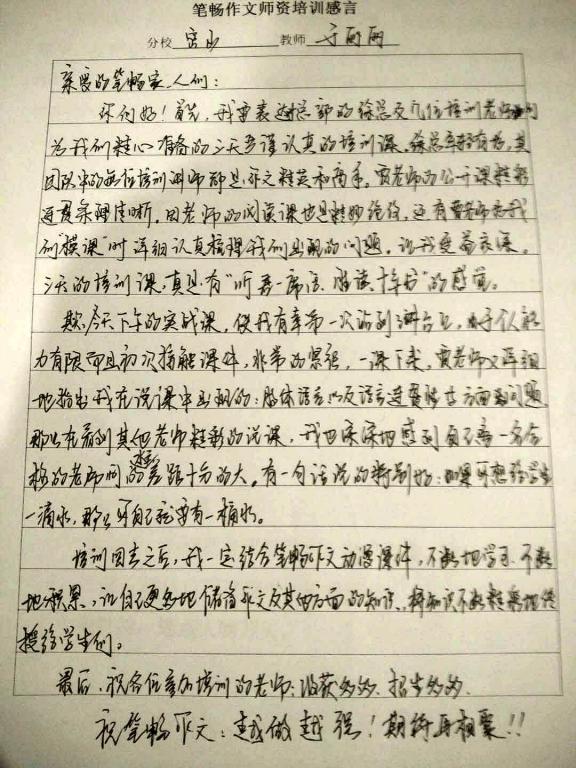 笔畅作文师资培训感言
分校 密山 教师 于丽丽
亲爱的笔畅家人们:
你们好!首先,我要表达总部的徐总及几位培训老师
为我们精心准备的三天严谨认真的培训课。徐总年轻有为,其
团队中的每位培训讲师都是作文精英和高手。贾老师的公开课精彩
连贯条理清晰。田老师的阅读课也是精妙绝伦,还有贾老师在我
们“摸课”时详细认真梳理我们出现的问题。让我受益良深。
三天的培训课,真是有“听君一席话 胜读十年书”的感觉。
今天下午的实战课,使我有幸第一次站到讲台上,由于个人能
力有限而且初次接触课件,非常的紧张,一课下来,贾老师又再细
地指出我在说课中出现的:肢体语言以及语言连贯性等方面的问题
那么在看到其他老师精彩的说课,我也深深地感到自己离一名合
格的老师间的差距十分的大。有一句话说的特别好:如果想给学生
一滴水,那么自己就要有一桶水。
培训回去之后,我一定结合笔畅作文动漫课件,不断地学习 不断
地积累,让自己更多地储备作文及其他方面的知识、将知识不断精彩地传
授给学生们。
最后,祝各位参加培训的老师:收获多多 招生多多
祝笔畅作文:越做越强!期待再相聚!!